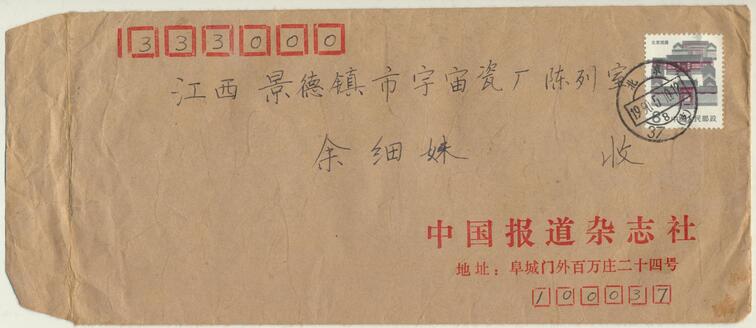 333000
江西 景德镇市宇宙瓷厂陈列室
余细妹 收
北京民居
中国人民邮政
北京
1990.5.10.18
37
中国报道杂志社
地址：阜城门外百万庄二十四号
100037